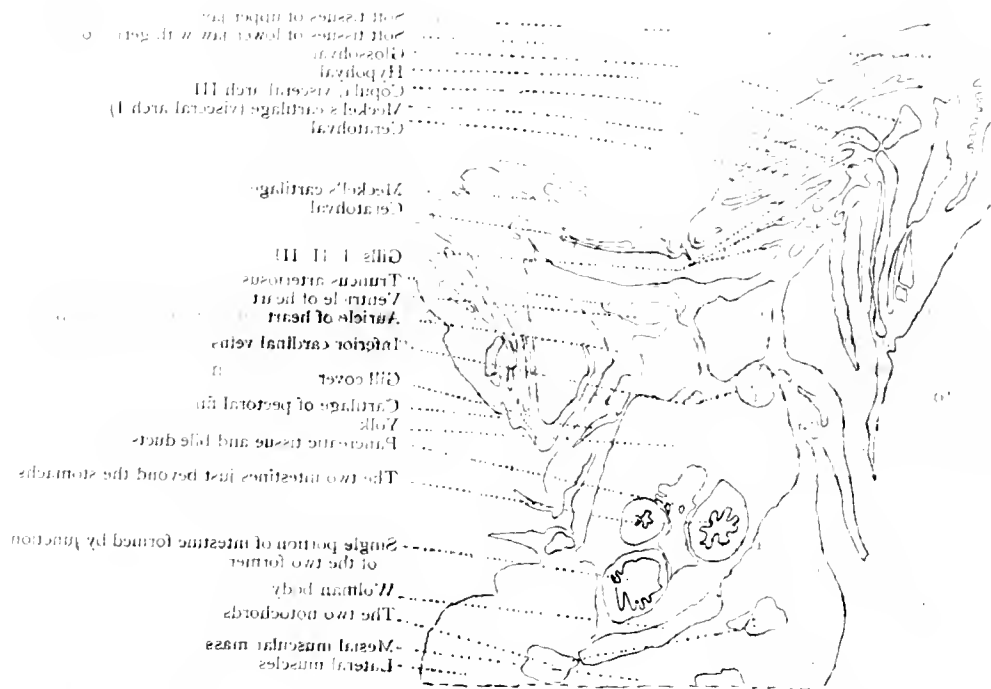 Soft tissues of upper jaw
Soft tissues of lower jaw with
Glossohyal
Hypohyal
Copula, visceral arch III
Meckel's cartilage (visceral arch I)
Ceratohyal
Meckel's cartilage
Ceratohyal
Gills I II III
Truncus arteriosus
Ventricle of heart
Auricle of heart
Inferior cardinal veins
Gill cover
Cartilage of pectoral fin
Yolk
Pancreatic tissue and bile ducts
The two intestines just beyond the stomachs
Single portion of intestine formed by junction
of the two former
Wolffian body
The two notochords
Mesial muscular mass
Lateral muscles